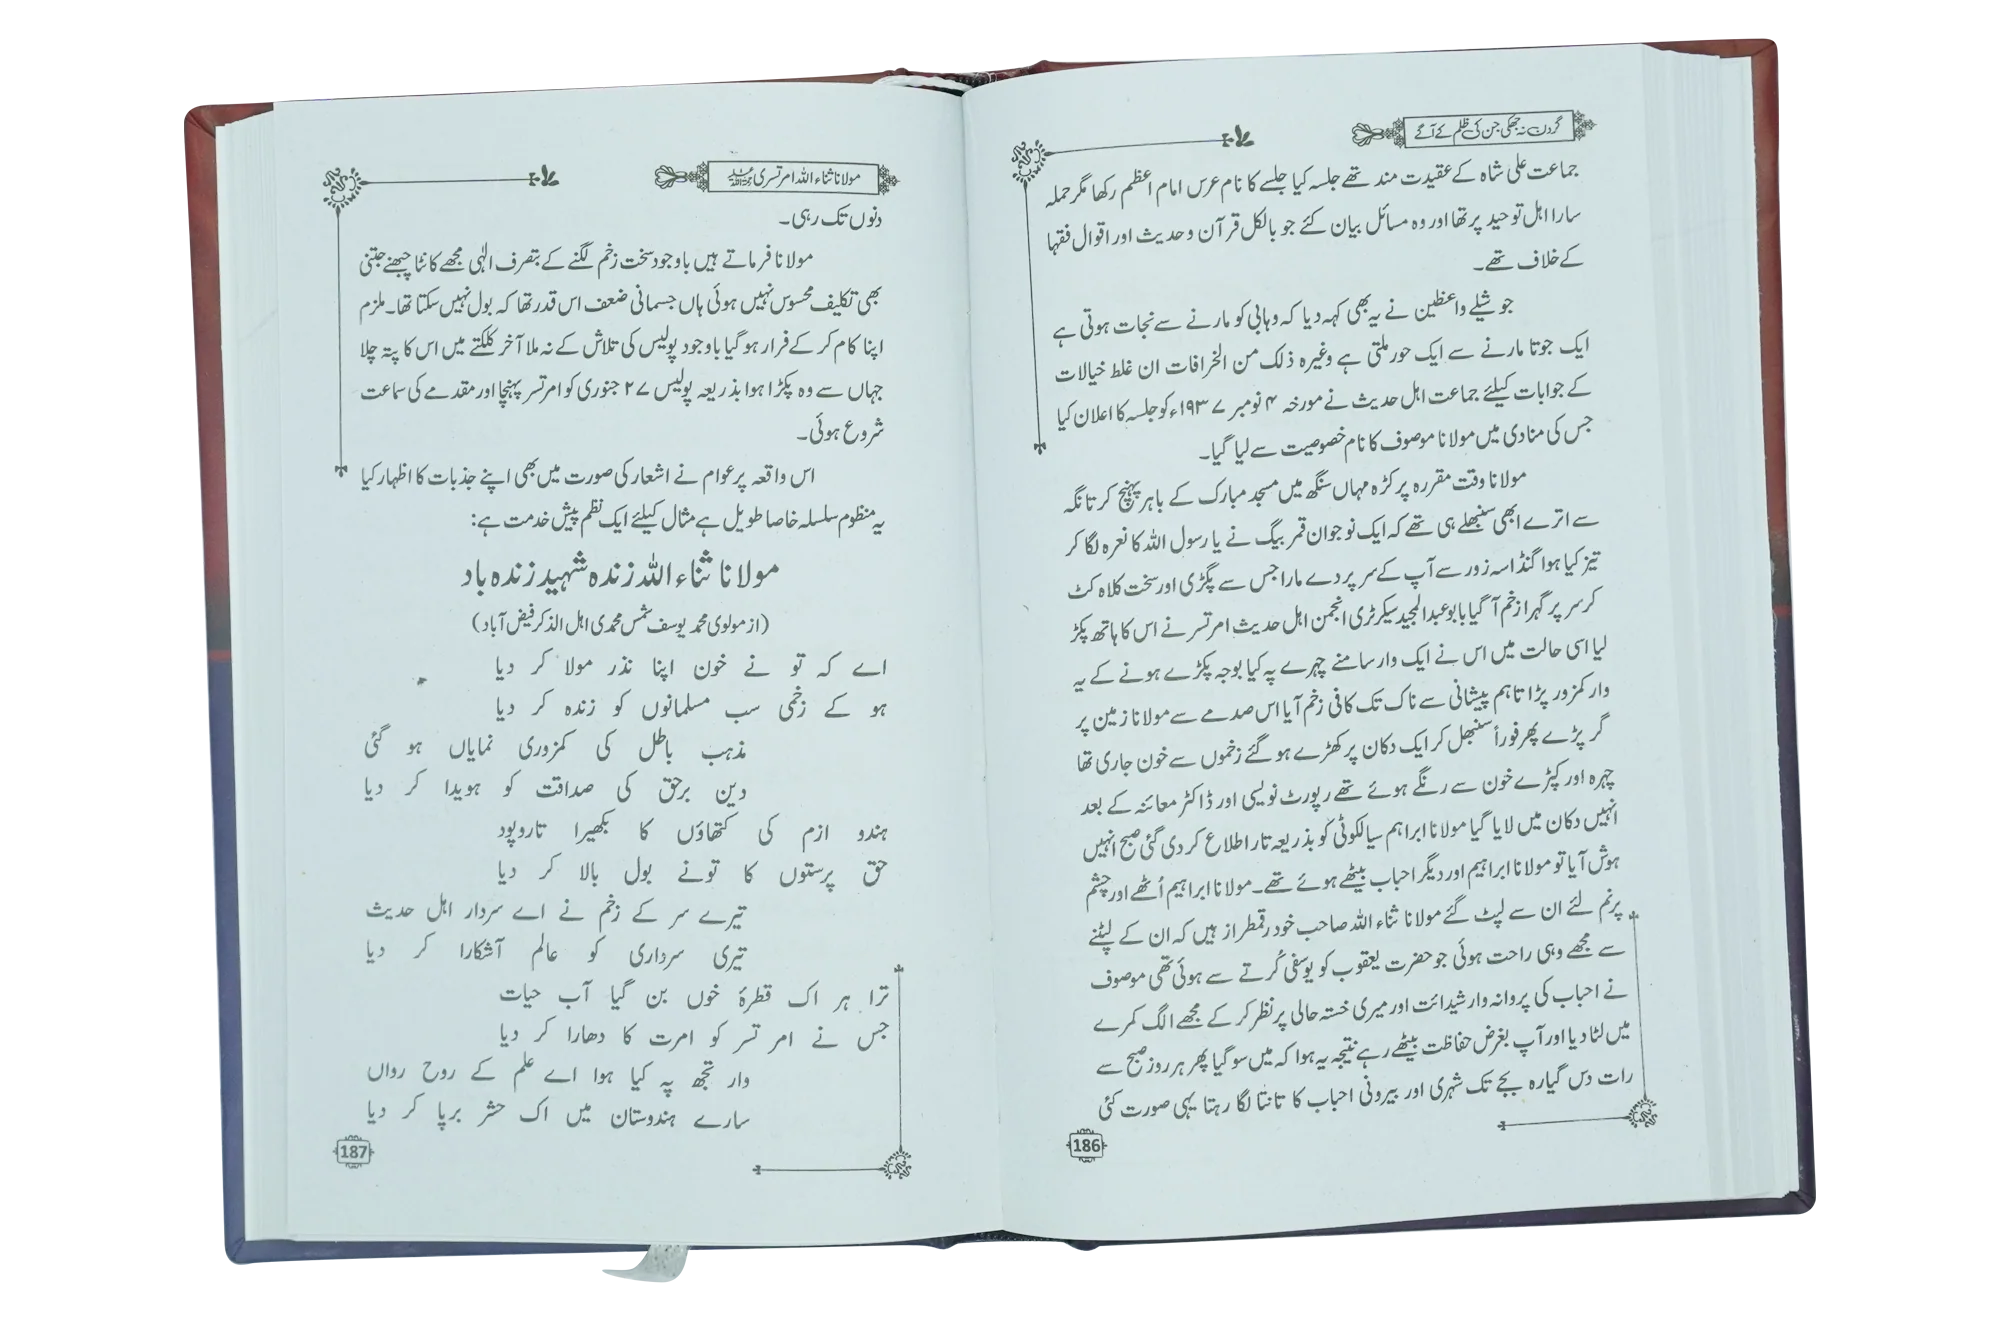 گردن نہ جھکی جن کی ظلم کے آگے
جماعت علی شاہ کے عقیدت مند تھے جلسہ کیا جلسے کا نام عرس امام اعظم رکھا مگر حملہ
سارا اہل توحید پر تھا اور وہ مسائل بیان کئے جو بالکل قرآن و حدیث اور اقوال فقہا
کے خلاف تھے۔
جوشیلے واعظین نے یہ بھی کہہ دیا کہ وہابی کو مارنے سے نجات ہوتی ہے
ایک جوتا مارنے سے ایک حور ملتی ہے وغیرہ ذلک من الخرافات ان غلط خیالات
کے جوابات کیلئے جماعت اہل حدیث نے مورخہ ۴ نومبر ۱۹۳۷ء کو جلسہ کا اعلان کیا
جس کی منادی میں مولانا موصوف کا نام خصوصیت سے لیا گیا۔
مولانا وقت مقررہ پر کڑہ مہاں سنگھ میں مسجد مبارک کے باہر پہنچ کر تانگہ
سے اترے ابھی سنبھلے ہی تھے کہ ایک نوجوان قمر بیگ نے یا رسول اللہ کا نعرہ لگا کر
تیز کیا ہوا گنڈاسہ زور سے آپ کے سر پر دے مارا جس سے پگڑی اور سخت کلاہ کٹ
کر سر پر گہرا زخم آ گیا بابو عبدالمجید سیکرٹری انجمن اہل حدیث امرتسر نے اس کا ہاتھ پکڑ
لیا اسی حالت میں اس نے ایک وار سامنے چہرے پہ کیا بوجہ پکڑے ہونے کے یہ
وار کمزور پڑا تاہم پیشانی سے ناک تک کافی زخم آیا اس صدمے سے مولانا زمین پر
گر پڑے پھر فوراً سنبھل کر ایک دکان پر کھڑے ہو گئے زخموں سے خون جاری تھا
چہرہ اور کپڑے خون سے رنگے ہوئے تھے رپورٹ نویسی اور ڈاکٹر معائنہ کے بعد
انہیں دکان میں لایا گیا مولانا ابراہم سیالکوٹی کو بذریعہ تار اطلاع کر دی گئی صبح انہیں
ہوش آیا تو مولانا ابراہیم اور دیگر احباب بیٹھے ہوئے تھے۔ مولانا ابراہیم اُٹھے اور چشم
پرنم لئے ان سے لپٹ گئے مولانا ثناء اللہ صاحب خود رقمطراز ہیں کہ ان کے لپٹنے
سے مجھے وہی راحت ہوئی جو حضرت یعقوب کو یوسفی کُرتے سے ہوئی تھی موصوف
نے احباب کی پروانہ وار شیدائت اور میری خستہ حالی پر نظر کر کے مجھے الگ کمرے
میں لٹا دیا اور آپ بغرض حفاظت بیٹھے رہے نتیجہ یہ ہوا کہ میں سو گیا پھر ہر روز صبح سے
رات دس گیارہ بجے تک شہری اور بیرونی احباب کا تانتا لگا رہتا یہی صورت کئی
186
مولانا ثناء اللہ امرتسری رحمۃ اللہ علیہ
دنوں تک رہی۔
مولانا فرماتے ہیں باوجود سخت زخم لگنے کے بتصرف الٰہی مجھے کانٹا چبھنے جتنی
بھی تکلیف محسوس نہیں ہوئی ہاں جسمانی ضعف اس قدر تھا کہ بول نہیں سکتا تھا۔ ملزم
اپنا کام کر کے فرار ہو گیا باوجود پولیس کی تلاش کے نہ ملا آخر کلکتے میں اس کا پتہ چلا
جہاں سے وہ پکڑا ہوا بذریعہ پولیس ۲۷ جنوری کو امرتسر پہنچا اور مقدمے کی سماعت
شروع ہوئی۔
اس واقعہ پر عوام نے اشعار کی صورت میں بھی اپنے جذبات کا اظہار کیا
یہ منظوم سلسلہ خاصا طویل ہے مثال کیلئے ایک نظم پیش خدمت ہے:
مولانا ثناء اللہ زندہ شہید زندہ باد
(از مولوی محمد یوسف شمس محمدی اہل الذکر فیض آباد)
اے کہ تو نے خون اپنا نذر مولا کر دیا
ہو کے زخمی سب مسلمانوں کو زندہ کر دیا
مذہب باطل کی کمزوری نمایاں ہو گئی
دین برحق کی صداقت کو ہویدا کر دیا
ہندو ازم کی کتھاؤں کا بکھیرا تاروپود
حق پرستوں کا تونے بول بالا کر دیا
تیرے سر کے زخم نے اے سردار اہل حدیث
تیری سرداری کو عالم آشکارا کر دیا
ترا ہر اک قطرۂ خوں بن گیا آب حیات
جس نے امر تسر کو امرت کا دھارا کر دیا
وار تجھ پہ کیا ہوا اے علم کے روح رواں
سارے ہندوستان میں اک حشر برپا کر دیا
187